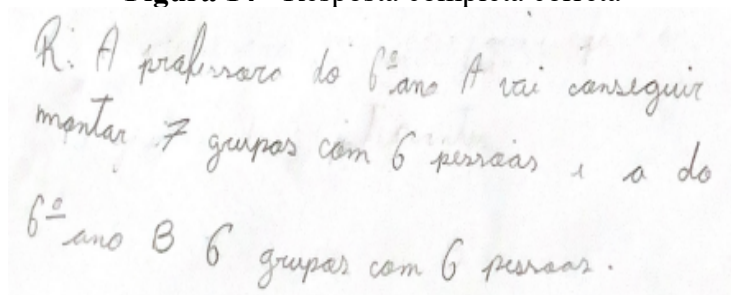 R: A professora do 6º ano A vai conseguir
montar 7 grupos com 6 pessoas e a do
6º ano B 6 grupos com 6 pessoas.